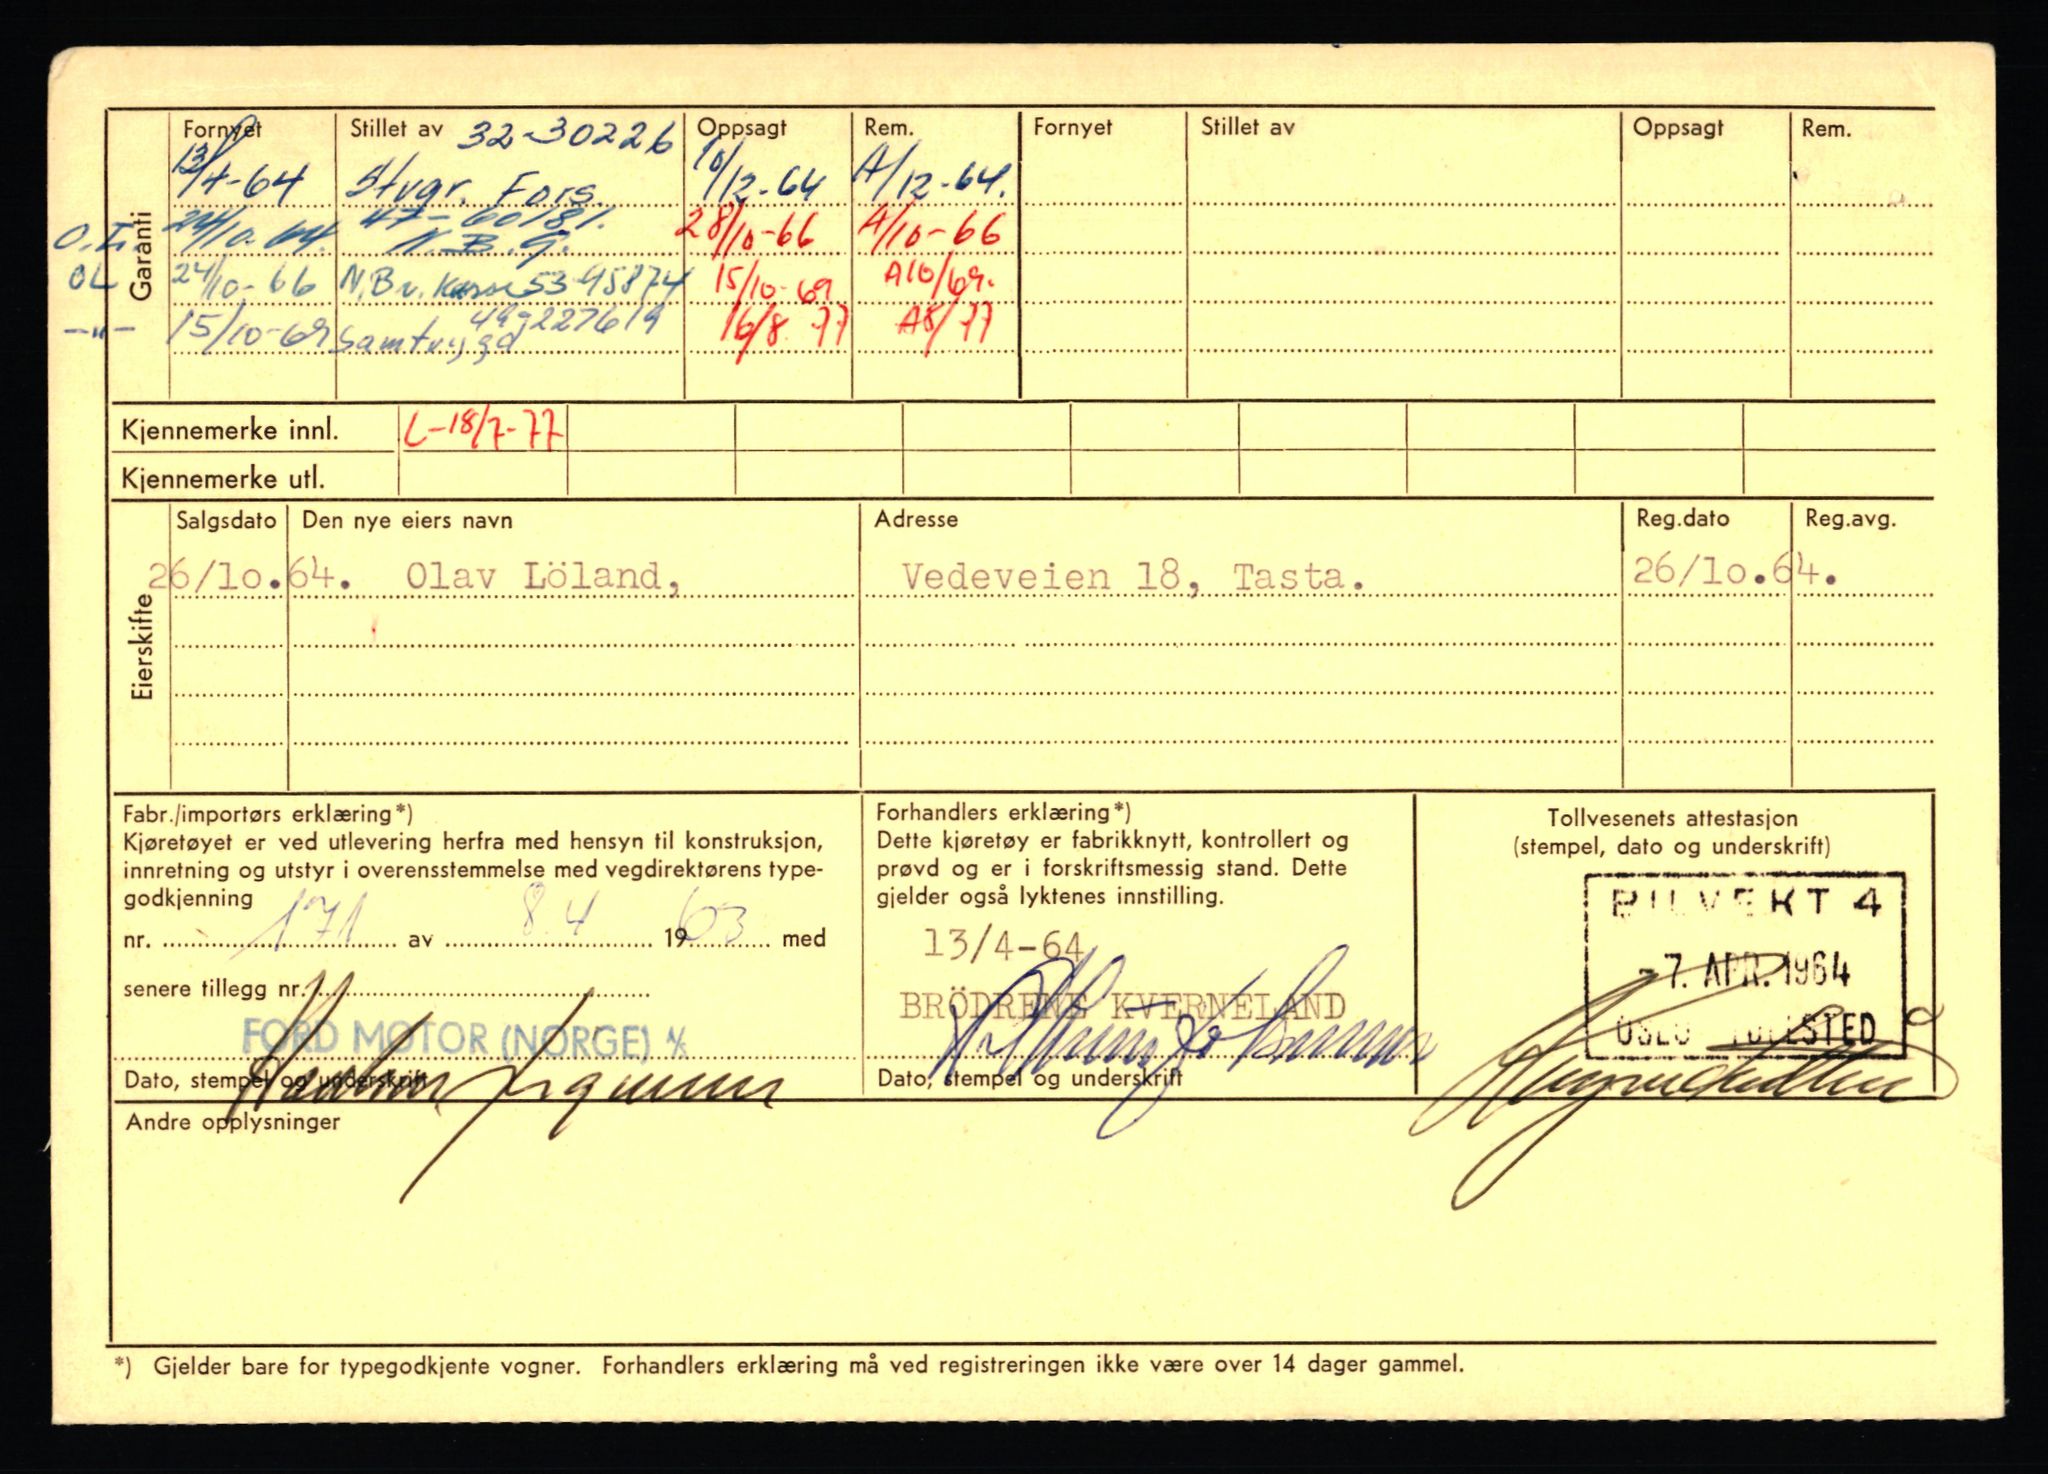 Fornyet Stillet av 32-30226 Oppsagt Rem. Fornyet Stillet av Oppsagt Rem.
13/4-64 Stvgr. Fors. 10/12-64 A/12-64.
O.L. 24/10.64. 47-60181. N.B.G. 28/10-66 A/10-66
OL 24/10-66 N.B v. Kasse 53-95874 15/10-69 A10/69.
-"- 15/10-69 Samtrygd 499227619 16/8 77 A8/77
Garanti
Kjennemerke innl. L-18/7-77
Kjennemerke utl.
Eierskifte
Salgsdato Den nye eiers navn Adresse Reg.dato Reg.avg.
26/10.64. Olav Löland, Vedeveien 18, Tasta. 26/10.64.
Fabr./importørs erklæring*)
Kjøretøyet er ved utlevering herfra med hensyn til konstruksjon,
innretning og utstyr i overensstemmelse med vegdirektørens type-
godkjenning
nr. 171 av 8.4 1963 med
senere tillegg nr.
FORD MOTOR (NORGE) A/S
Dato, stempel og underskrift
Forhandlers erklæring*)
Dette kjøretøy er fabrikknytt, kontrollert og
prøvd og er i forskriftsmessig stand. Dette
gjelder også lyktenes innstilling.
13/4-64
BRÖDRENE KVERNELAND
Dato, stempel og underskrift
Tollvesenets attestasjon
(stempel, dato og underskrift)
BILVEKT 4
-7. APR. 1964
OSLO TOLLSTED
Andre opplysninger
*) Gjelder bare for typegodkjente vogner. Forhandlers erklæring må ved registreringen ikke være over 14 dager gammel.